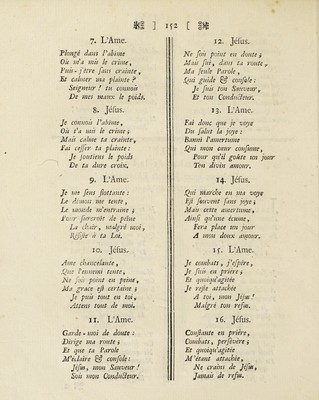 ] 152 [
7. L'Ame.
Plongé dans l'abime
Où m'a mis le crime,
Puis-j'être sans crainte,
Et calmer ma plainte?
Seigneur! tu connois
De mes maux le poids.
8. Jésus.
Je connois l'abime,
Où t'a mis le crime;
Mais calme ta crainte,
Fai cesser ta plainte:
Je soutiens le poids
De ta dure croix.
9. L'Ame.
Je me sens flottante:
Le démon me tente,
Le monde m'entraine;
Pour surcroit de peine
La chair, malgré moi,
Résiste à ta Loi.
10. Jésus.
Ame chancelante,
Que l'ennemi tente,
Ne soi point en peine,
Ma grace est certaine;
Je puis tout en toi,
Attens tout de moi.
11. L'Ame.
Garde-moi de doute:
Dirige ma route;
Et que ta Parole
M'éclaire & console:
Jésu, mon Sauveur!
Soit mon Conducteur.
12. Jésus.
Ne soit point en doute;
Mais sui, dans ta route,
Ma seule Parole,
Qui guide & console:
Je suis ton Sauveur,
Et ton Conducteur.
13. L'Ame.
Fai donc que je voye
Du salut la joye:
Banni l'amertume
Qui mon cœur consume,
Pour qu'il goûte un jour
Ton divin amour.
14. Jésus.
Qui marche en ma voye
Est souvent sans joye;
Mais cette amertume,
Ainsi qu'une écume,
Fera place un jour
A mon doux amour.
15. L'Ame.
Je combats, j'espère,
Je suis en prière;
Et quoiqu'agitée
Je reste attachée
A toi, mon Jésu!
Malgré ton refus.
16. Jésus.
Constante en prière,
Combats, persévère;
Et quoiqu'agitée
M'étant attachée,
Ne crains de Jésus,
Jamais de refus.